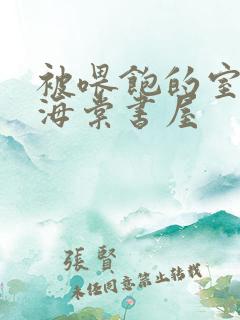 被喂飽的室
海棠書屋
張賢
未经同意禁止转载